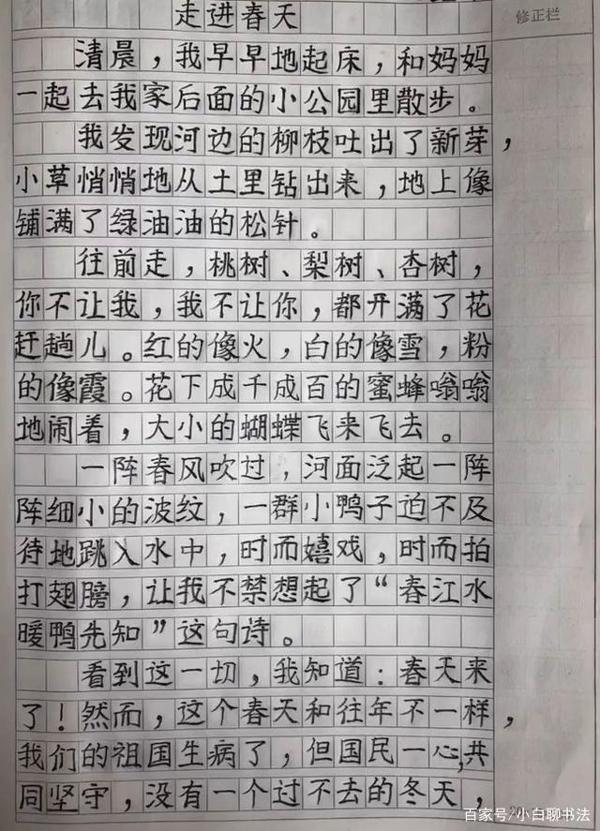 走进春天
修正栏
清晨，我早早地起床，和妈妈
一起去我家后面的小公园里散步。
我发现河边的柳枝吐出了新芽，
小草悄悄地从土里钻出来，地上像
铺满了绿油油的松针。
往前走，桃树、梨树、杏树，
你不让我，我不让你，都开满了花
赶趟儿。红的像火，白的像雪，粉
的像霞。花下成千成百的蜜蜂嗡嗡
地闹着，大小的蝴蝶飞来飞去。
一阵春风吹过，河面泛起一阵
阵细小的波纹，一群小鸭子迫不及
待地跳入水中，时而嬉戏，时而拍
打翅膀，让我不禁想起了“春江水
暖鸭先知”这句诗。
看到这一切，我知道：春天来
了！然而，这个春天和往年不一样，
我们的祖国生病了，但国民一心，共
同坚守，没有一个过不去的冬天，
百家号/小白聊书法